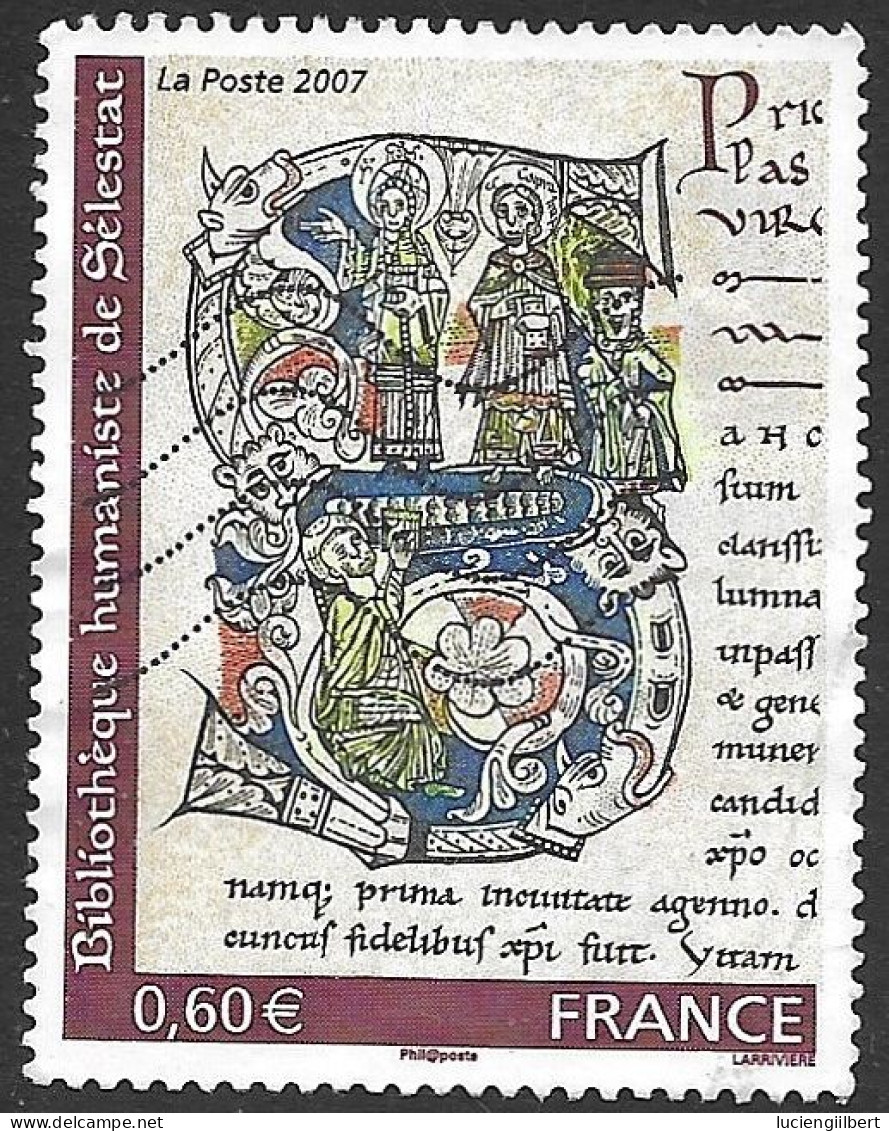 La Poste 2007
Bibliothèque humaniste de Sélestat
Pric
plas
VIRG
A H C
suum
clarissi
lumina
inpass
& gene
muner
candid
xp̄o oc
namq; prima inciuitate agenno. d
cunctis fidelibus xp̄i fuit. Vitam
0,60€
FRANCE
Phil@poste
LARRIVIERE
www.delcampe.net
luciengilbert